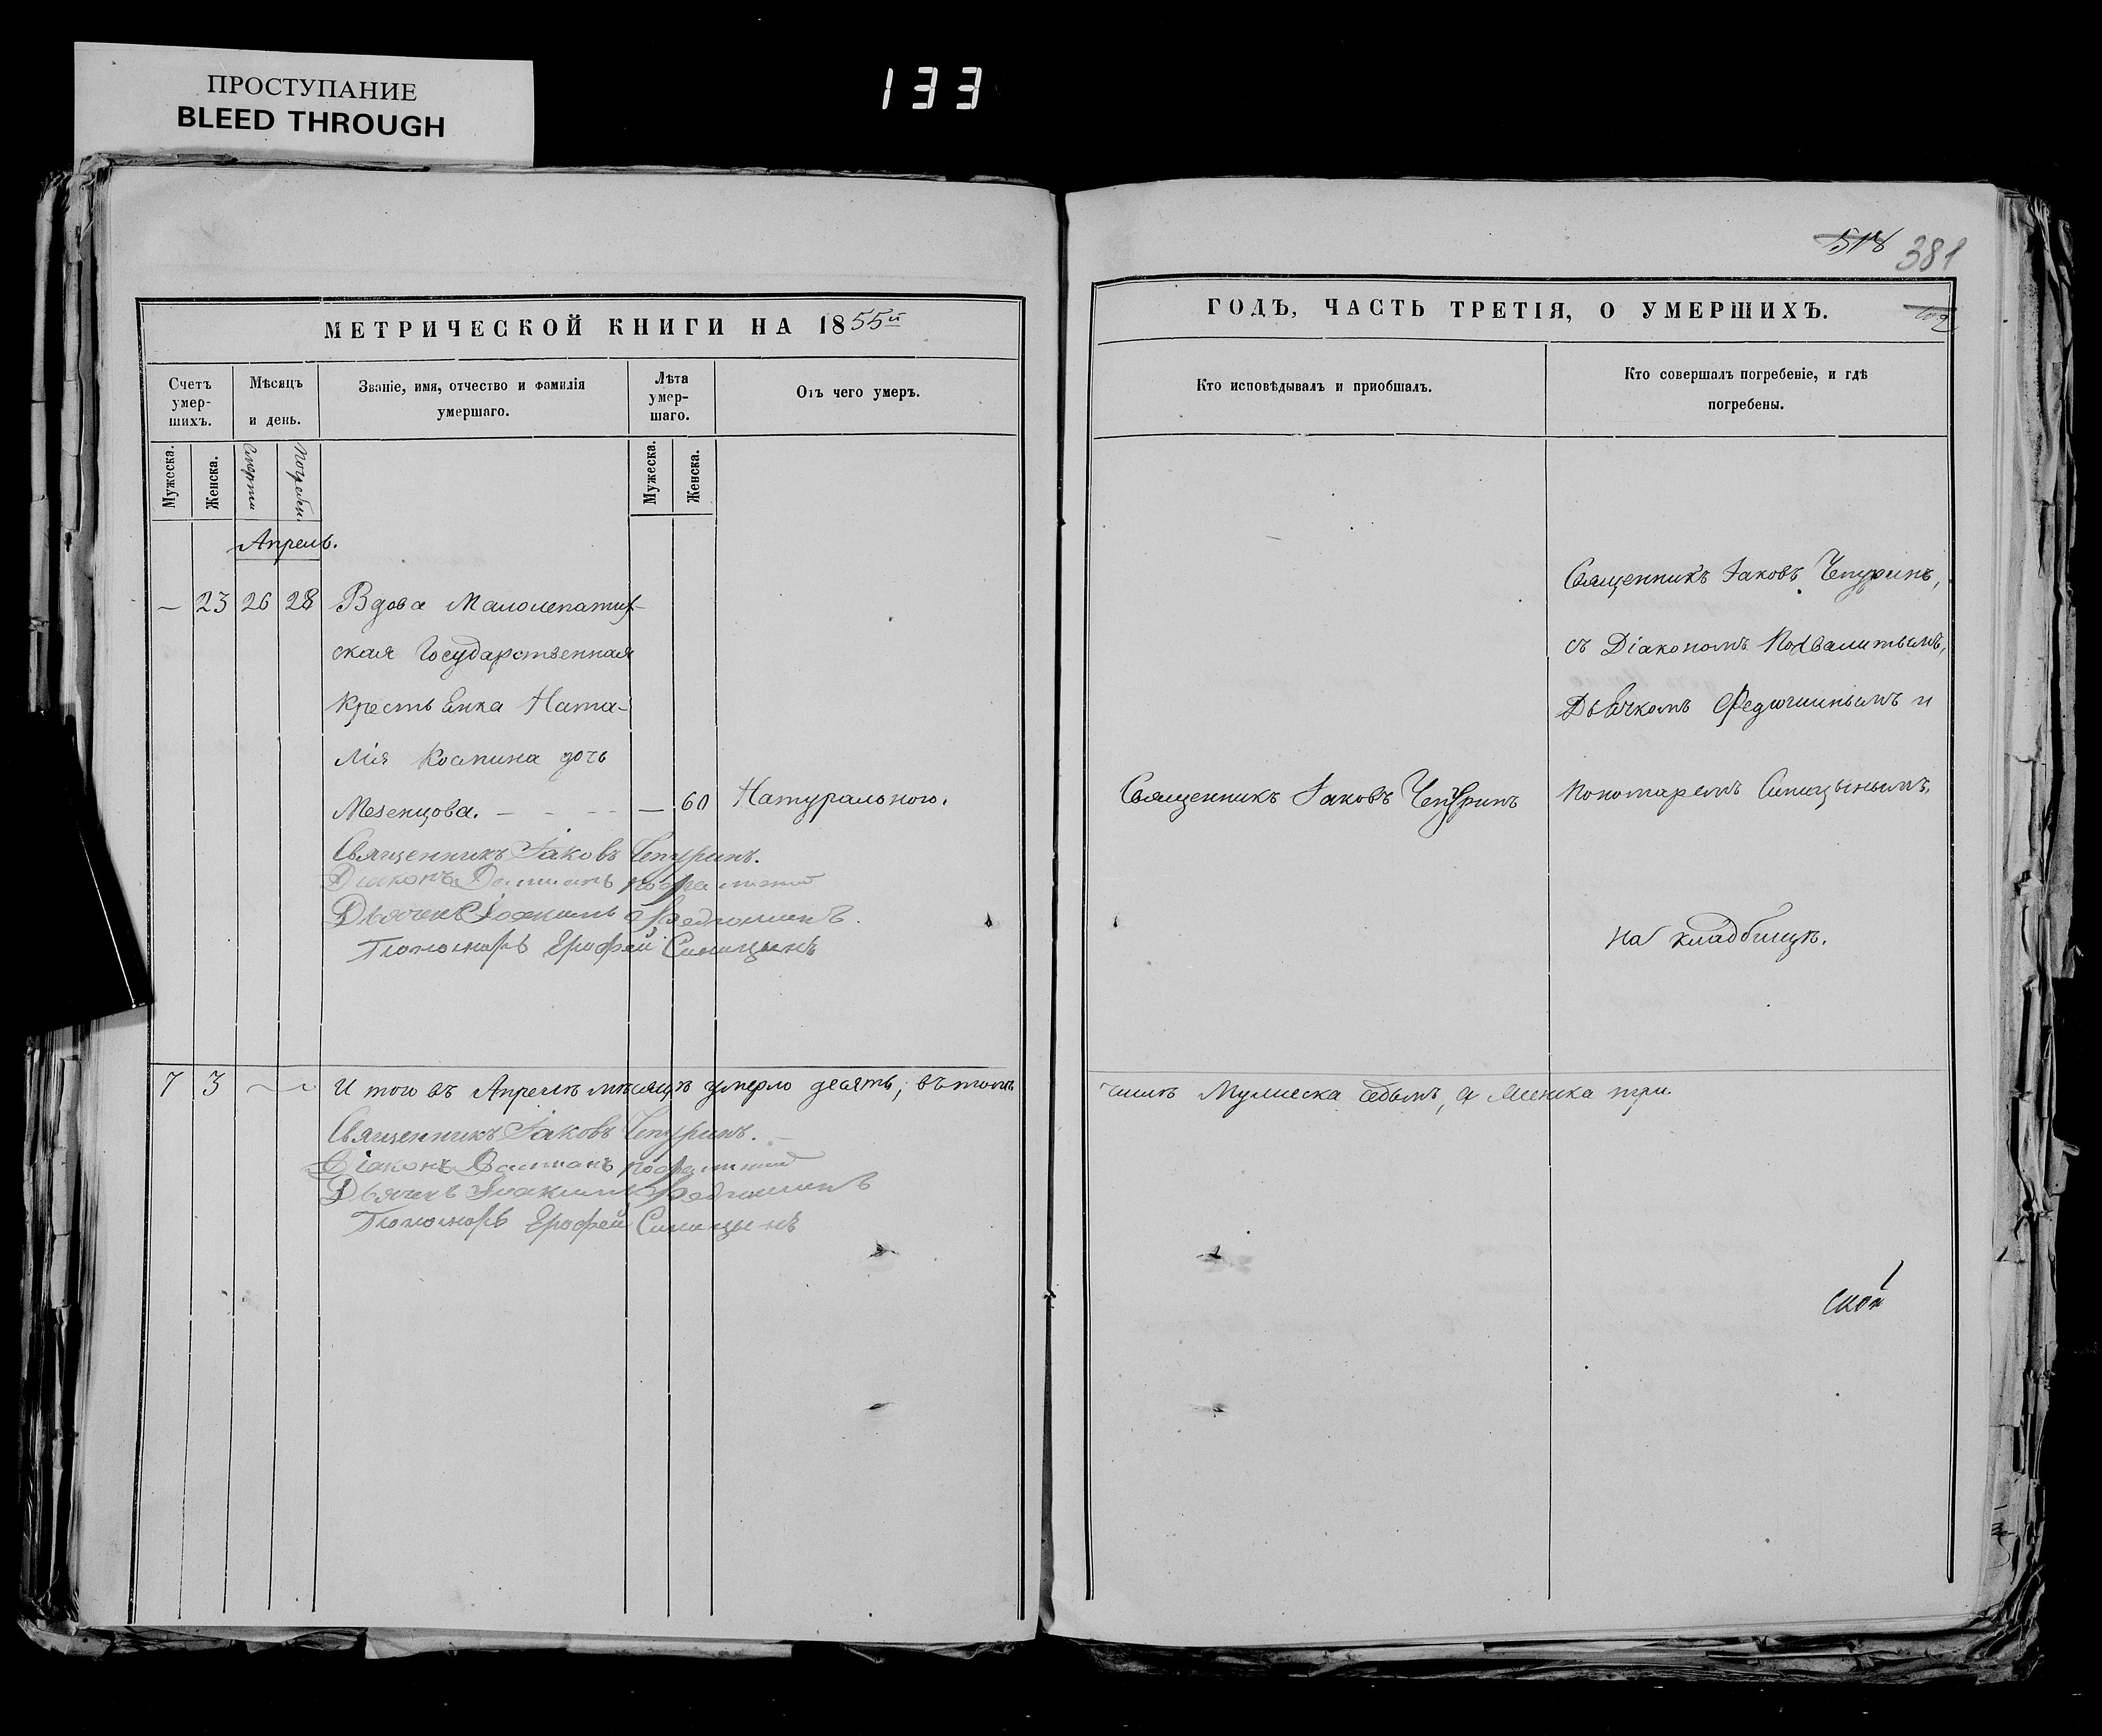 ПРОСТУПАНИЕ
BLEED THROUGH
133
518 381
МЕТРИЧЕСКОЙ КНИГИ НА 1855й
ГОДЪ, ЧАСТЬ ТРЕТІЯ, О УМЕРШИХЪ.
Счетъ умер-
шихъ.
Мѣсяцъ
и день.
Званіе, имя, отчество и фамилія
умершаго.
Лѣта
умер-
шаго.
Отъ чего умеръ.
Кто исповѣдывалъ и приобщалъ.
Кто совершалъ погребеніе, и гдѣ
погребены.
Мужеска.
Женска.
Смерти
Погребен.
Мужеска.
Женска.
Апрель.
— 23 26 28 Вдова
ская Государственная
Крестьянка Ната-
лія Космина дочь
Мезенцова. — 60 Натуральною.
Священникъ Іаковъ Чепуринъ.
Діаконъ Дамианъ
Дьячекъ Іоакимъ Федюшинъ.
Пономарь Ерофей Синицынъ
Священникъ Іаковъ Чепуринъ
Священникъ Іаковъ Чепуринъ,
съ Діакономъ
Дьячкомъ Федюшинымъ и
Пономаремъ Синицынымъ,
на кладбищѣ.
7 3 И того въ Апрелѣ мѣсяцѣ умерло десять, въ томъ
числѣ Мужеска седьмъ, а Женска три.
Священникъ Іаковъ Чепуринъ.
Діаконъ Дамианъ
Дьячекъ Іоакимъ Федюшинъ
Пономарь Ерофей Синицынъ